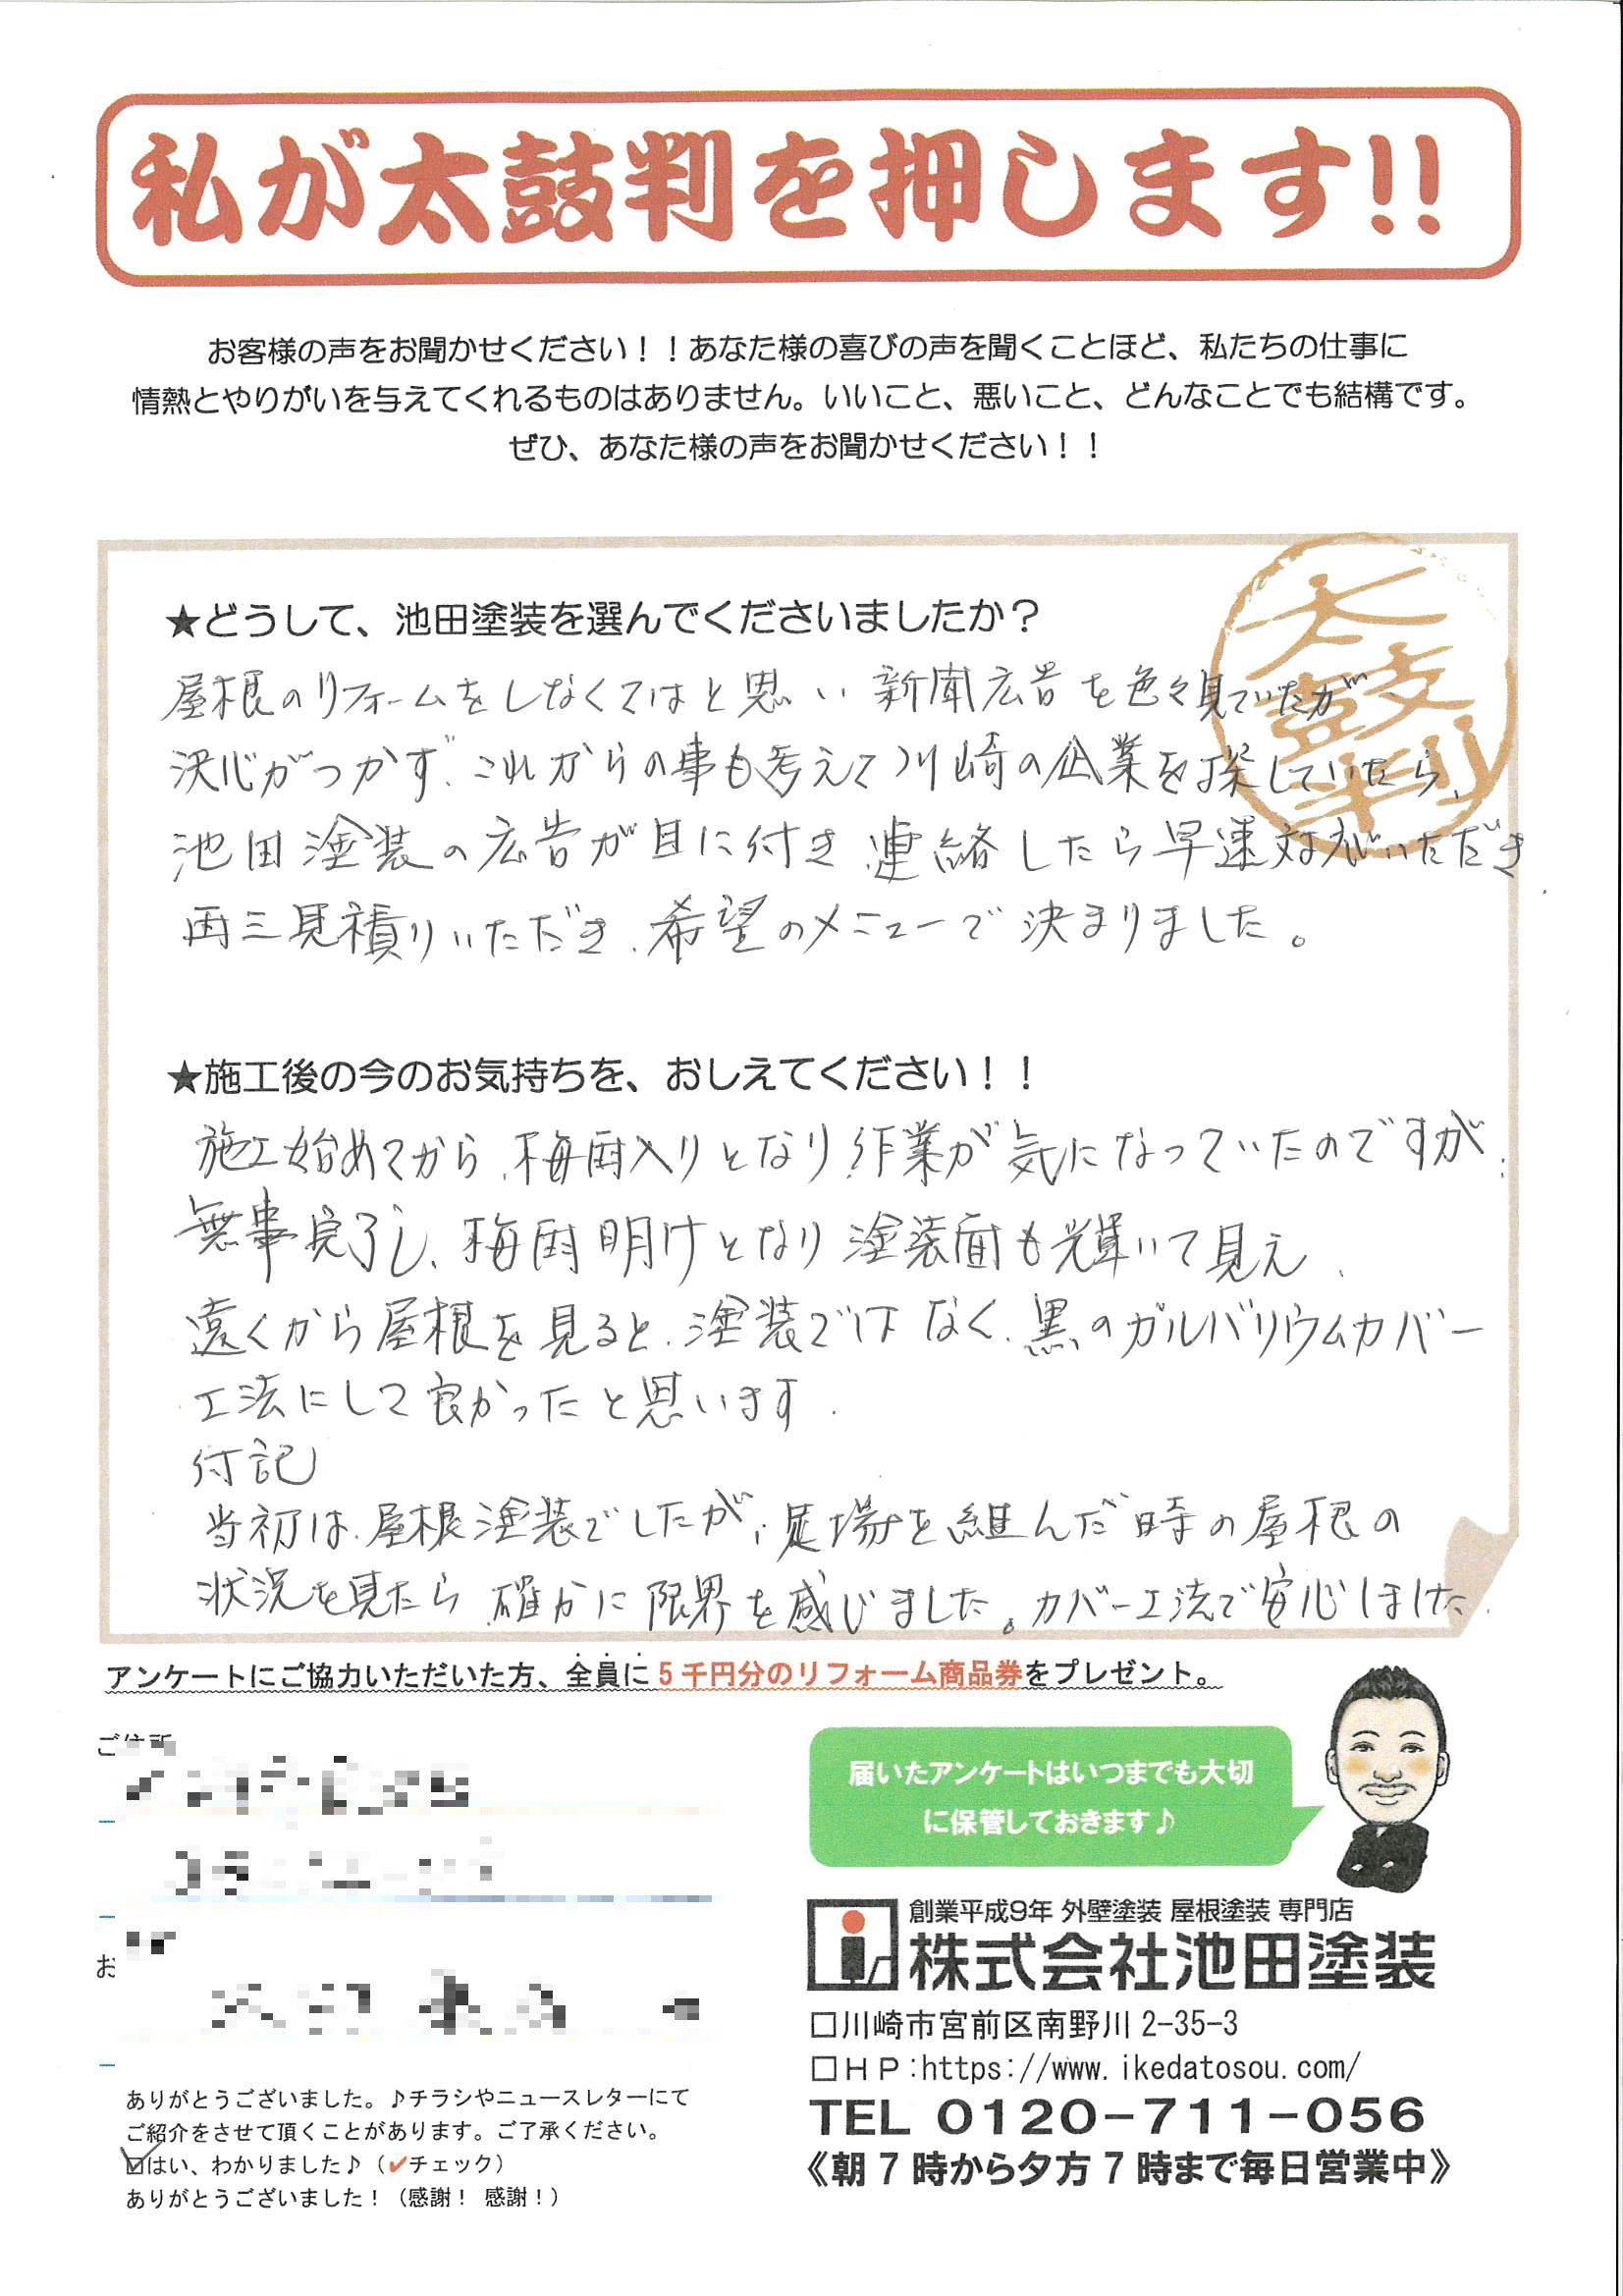 私が太鼓判を押します!!
お客様の声をお聞かせください！！あなた様の喜びの声を聞くことほど、私たちの仕事に
情熱とやりがいを与えてくれるものはありません。いいこと、悪いこと、どんなことでも結構です。
ぜひ、あなた様の声をお聞かせください！！
太鼓判
★どうして、池田塗装を選んでくださいましたか？
屋根のリフォームをしなくてはと思い新聞広告を色々見ていたが
決心がつかず、これからの事も考えて川崎の企業を探していたら、
池田塗装の広告が目に付き、連絡したら早速対応いただき
再三見積りいただき、希望のメニューで決まりました。
★施工後の今のお気持ちを、おしえてください！！
施工始めてから、梅雨入りとなり、作業が気になっていたのですが、
無事完了し、梅雨明けとなり塗装面も輝いて見え、
遠くから屋根を見ると、塗装ではなく、黒のガルバリウムカバー
工法にして良かったと思います.
付記
当初は、屋根塗装でしたが、足場を組んだ時の屋根の
状況を見たら、確かに限界を感じました。カバー工法で安心しました.
アンケートにご協力いただいた方、全員に5千円分のリフォーム商品券をプレゼント。
ご住所
届いたアンケートはいつまでも大切
に保管しておきます♪
お
創業平成9年 外壁塗装 屋根塗装 専門店
株式会社池田塗装
□川崎市宮前区南野川 2-35-3
□ＨＰ:https://www.ikedatosou.com/
TEL 0120-711-056
《朝7時から夕方7時まで毎日営業中》
ありがとうございました。♪チラシやニュースレターにて
ご紹介をさせて頂くことがあります。ご了承ください。
☑はい、わかりました♪（✔チェック）
ありがとうございました！（感謝！ 感謝！）